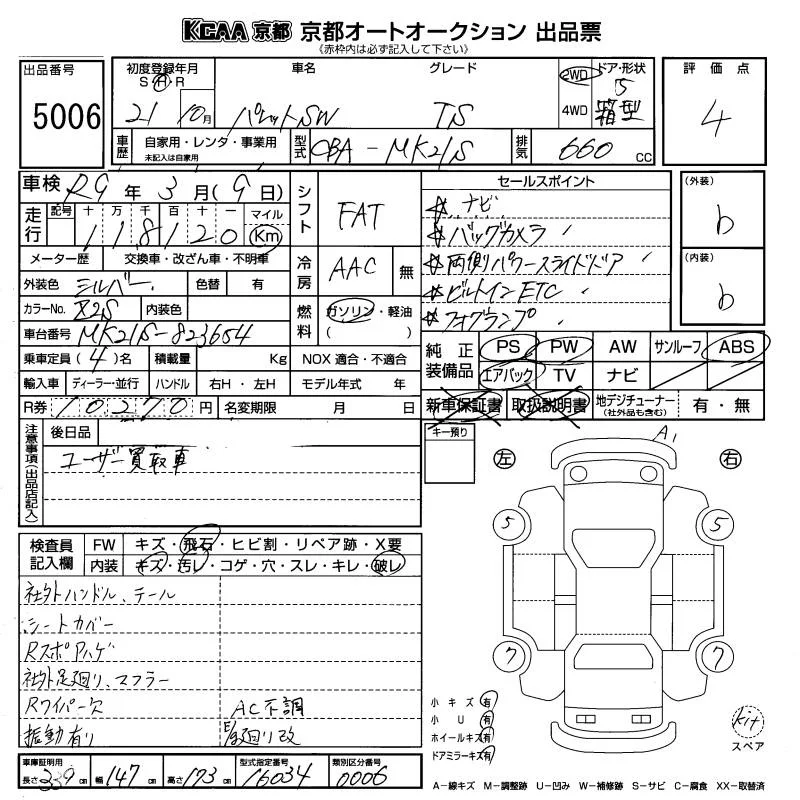 KCAA 京都 京都オートオークション 出品票
《赤枠内は必ず記入して下さい》
出品番号
5006
初度登録年月
S H R
21 10月
車名
パレットSW
グレード
TS
2WD
4WD
ドア・形状
5
箱型
評価点
4
車歴
自家用・レンタ・事業用
未記入は自家用
型式
CBA - MK21S
排気
660 CC
車検 R9 年 3 月( 9 日)
走行
記号 十 万 千 百 十 一 マイル
1 1 8 1 2 0 Km
メーター歴 交換車・改ざん車・不明車
外装色 シルバー 色替 有
カラーNo. X2S 内装色
車台番号 MK21S-823654
乗車定員 ( 4 ) 名 積載量 Kg
輸入車 ディーラー・並行 ハンドル 右H・左H
R券 10270 円 名変期限 月 日
シフト
FAT
冷房
AAC 無
燃料
ガソリン・軽油
( )
NOX 適合・不適合
モデル年式 年
セールスポイント
☆ ナビ
☆ バックカメラ
☆ 両側パワースライドドア
☆ ビルトインETC
☆ フォグランプ
(外装)
b
(内装)
b
純正装備品
PS PW AW サンルーフ ABS
エアバック TV ナビ
新車保証書 取扱説明書 地デジチューナー (社外品も含む) 有・無
注意事項(出品店記入)
後日品
ユーザー買取車
キー預り
検査員記入欄
FW キズ・飛石・ヒビ割・リペア跡・X要
内装 キズ・汚レ・コゲ・穴・スレ・キレ・破レ
社外ハンドル、テール
シートカバー
Rスポアハゲ
社外足廻り、マフラー
Rワイパー欠
AC不調
振動有り
廻り改
左
右
A1
5 5
7 7
小キズ 有
小U 有
ホイールキズ 有
ドアミラーキズ 有
Kit
スペア
車庫証明用
長さ 339 cm 幅 147 cm 高さ 173 cm
型式指定番号 16034
類別区分番号 0006
A-線キズ M-調整跡 U-凹み W-補修跡 S-サビ C-腐食 XX-取替済